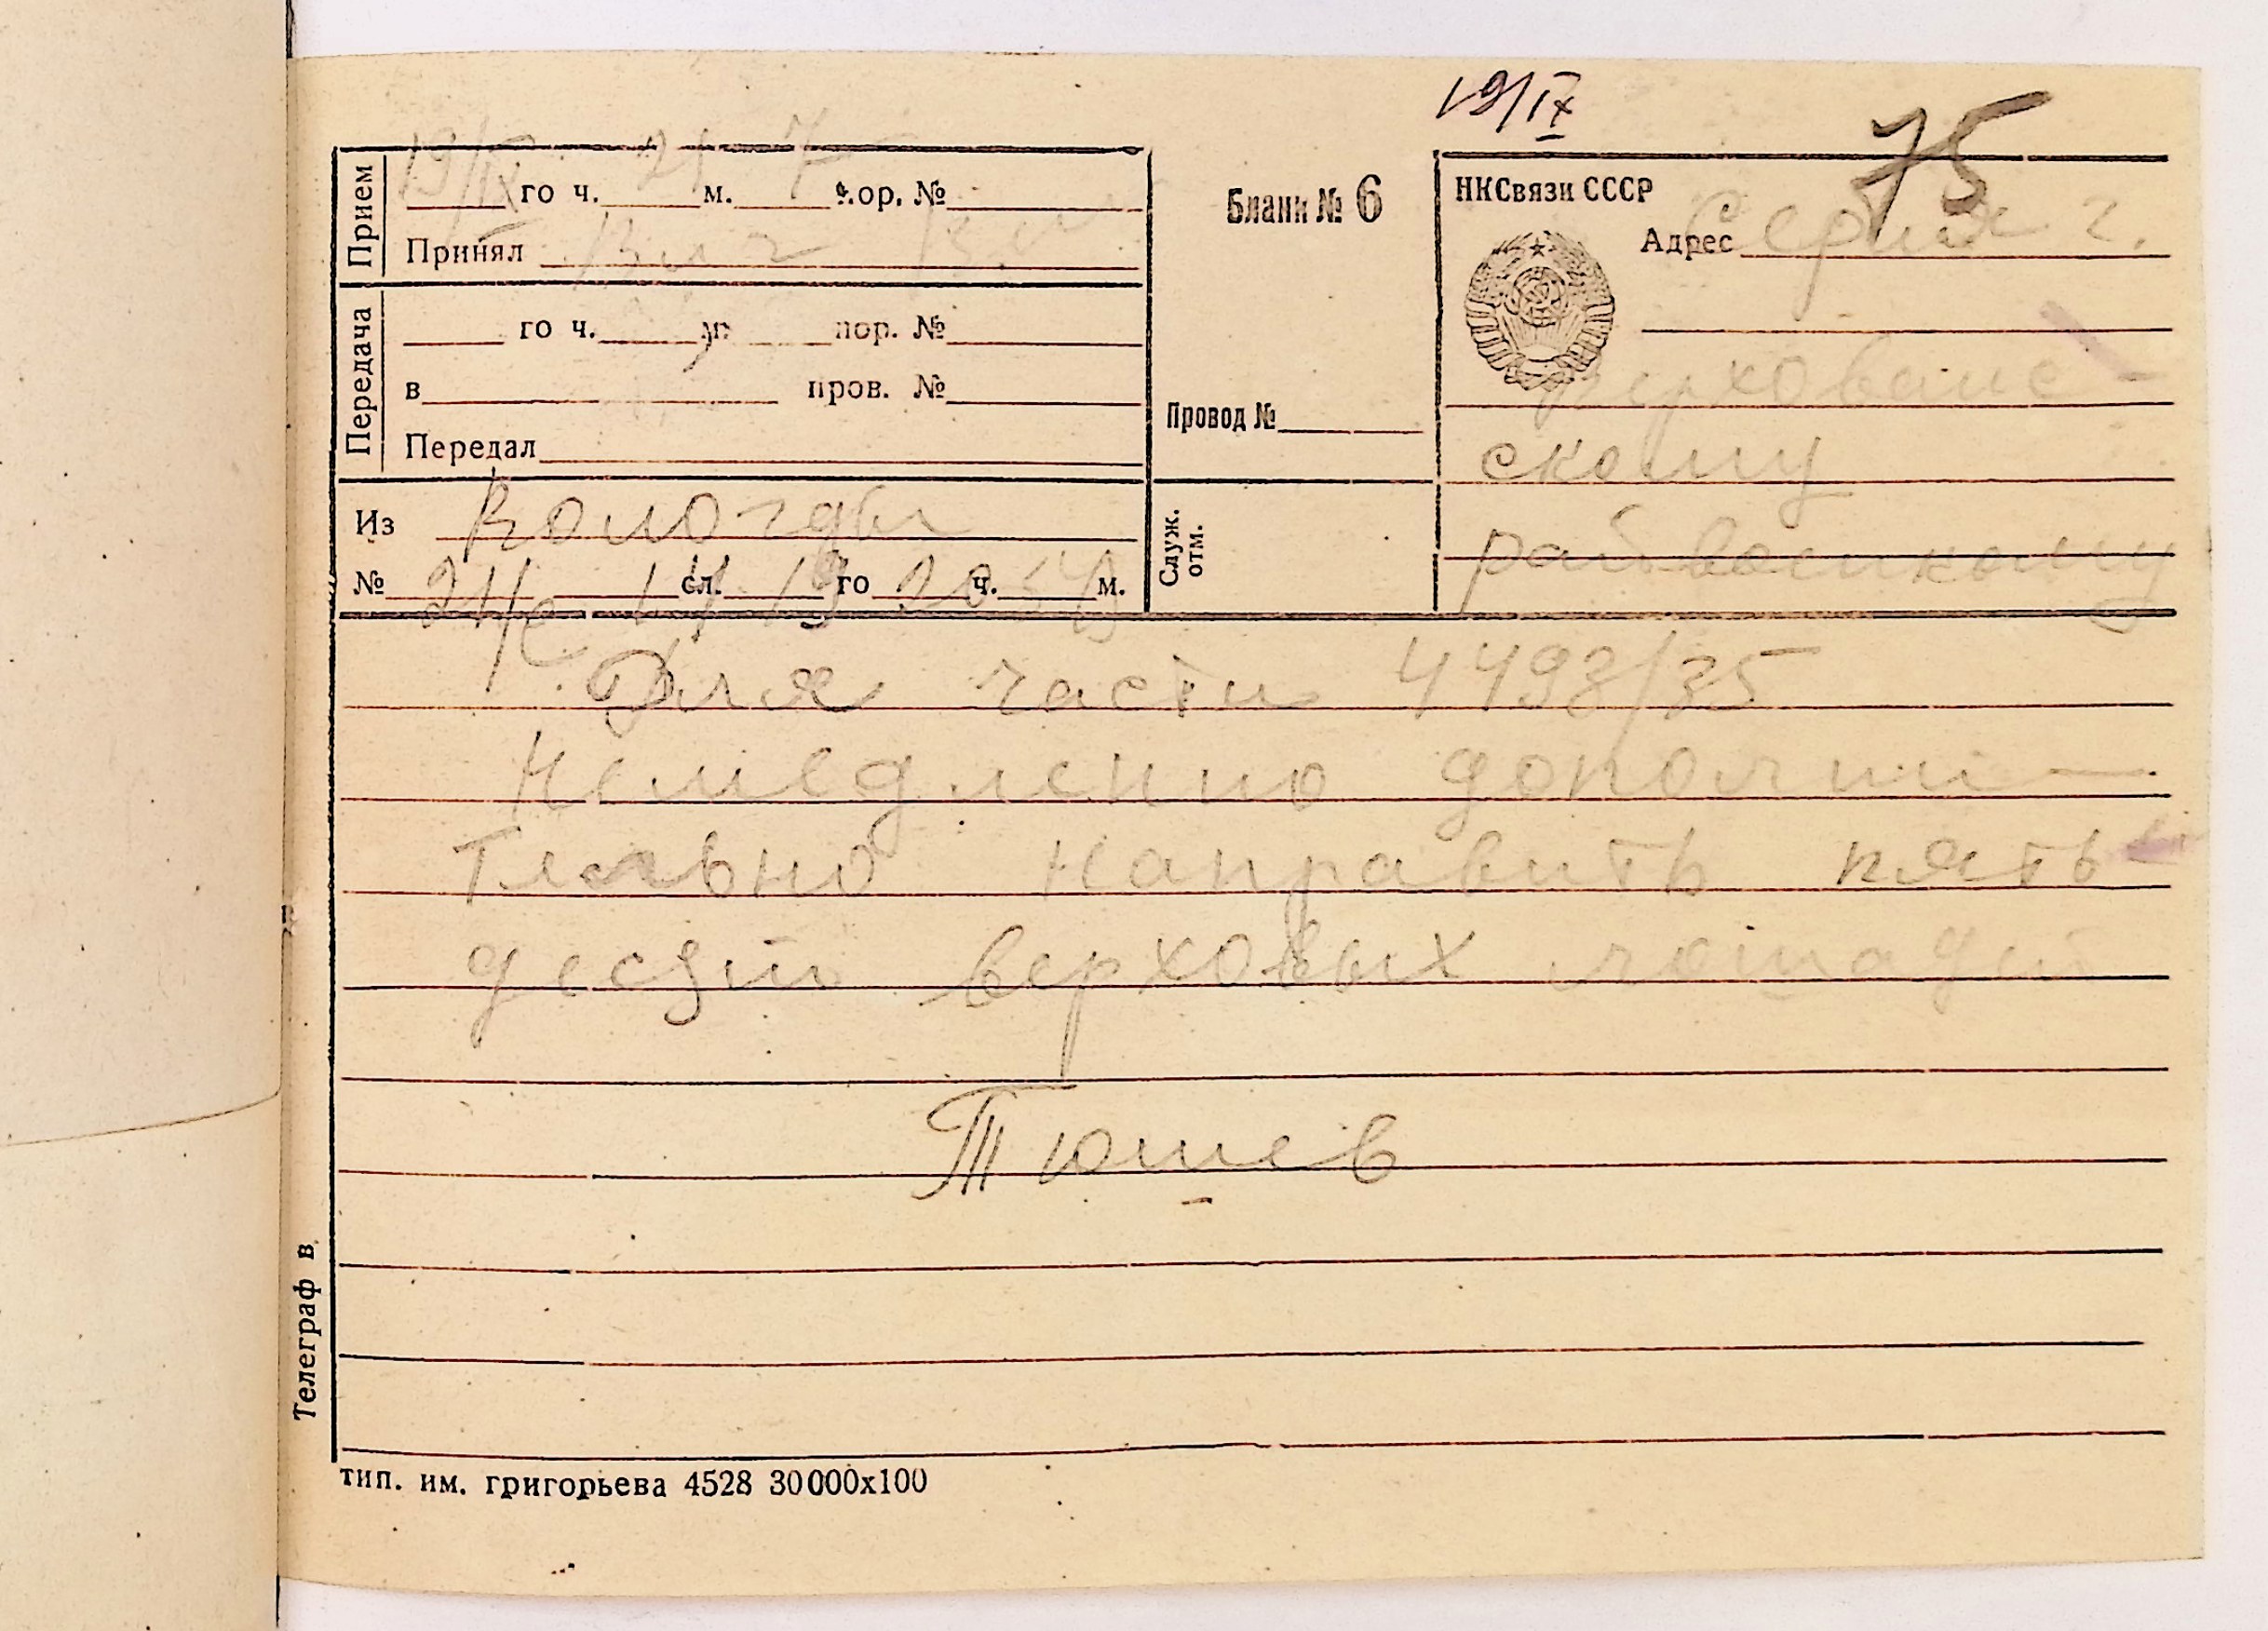 19/IX
75
Прием
19/IX го ч. 21 м. 7 пор. №
Принял
Передача
го ч. м. пор. №
в пров. №
Передал
Из Вологды
№ 24/с 14 сл. 19 го 20 ч. м.
Бланк № 6
Провод №
Служ. отм.
НКСвязи СССР
Адрес Серия г.
Верховаже-
скому
райвоенкому
Для части 4493/35
Немедленно дополни-
тельно направить пять-
десят верховых лошадей
Тюшев
Телеграф в
тип. им. григорьева 4528 30000х100